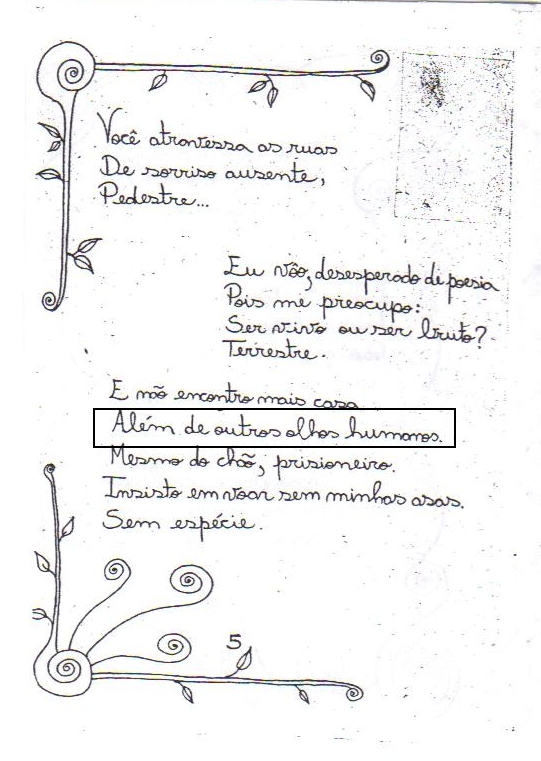 Você atravessa as ruas
De sorriso ausente,
Pedestre...
Eu vôo, desesperado de poesia
Pois me preocupo:
Ser vivo ou ser bruto?
Terrestre.
E não encontro mais casa
Além de outros olhos humanos.
Mesmo do chão, prisioneiro.
Insisto em voar sem minhas asas.
Sem espécie.
5